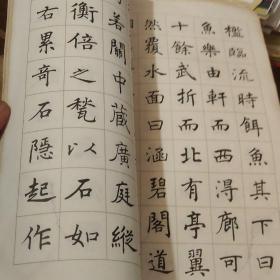 檻臨流時餌魚其下曰
魚樂由軒而西得廊可
十餘武折而北有亭翼
然覆水面曰涵碧閣道
若關中藏廣庭縱
衡倍之甃以石如
右累奇石隱起作